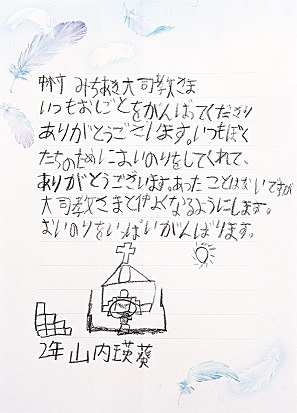 中村 みちあき大司教さま
いつもおしごとをがんばってくださり
ありがとうございます。いつもぼく
たちのためにおいのりをしてくれて、
ありがとうございます。あったことはないですが
大司教さまと仲よくなるようにします。
おいのりをいっぱいがんばります。
2年 山内瑛葵